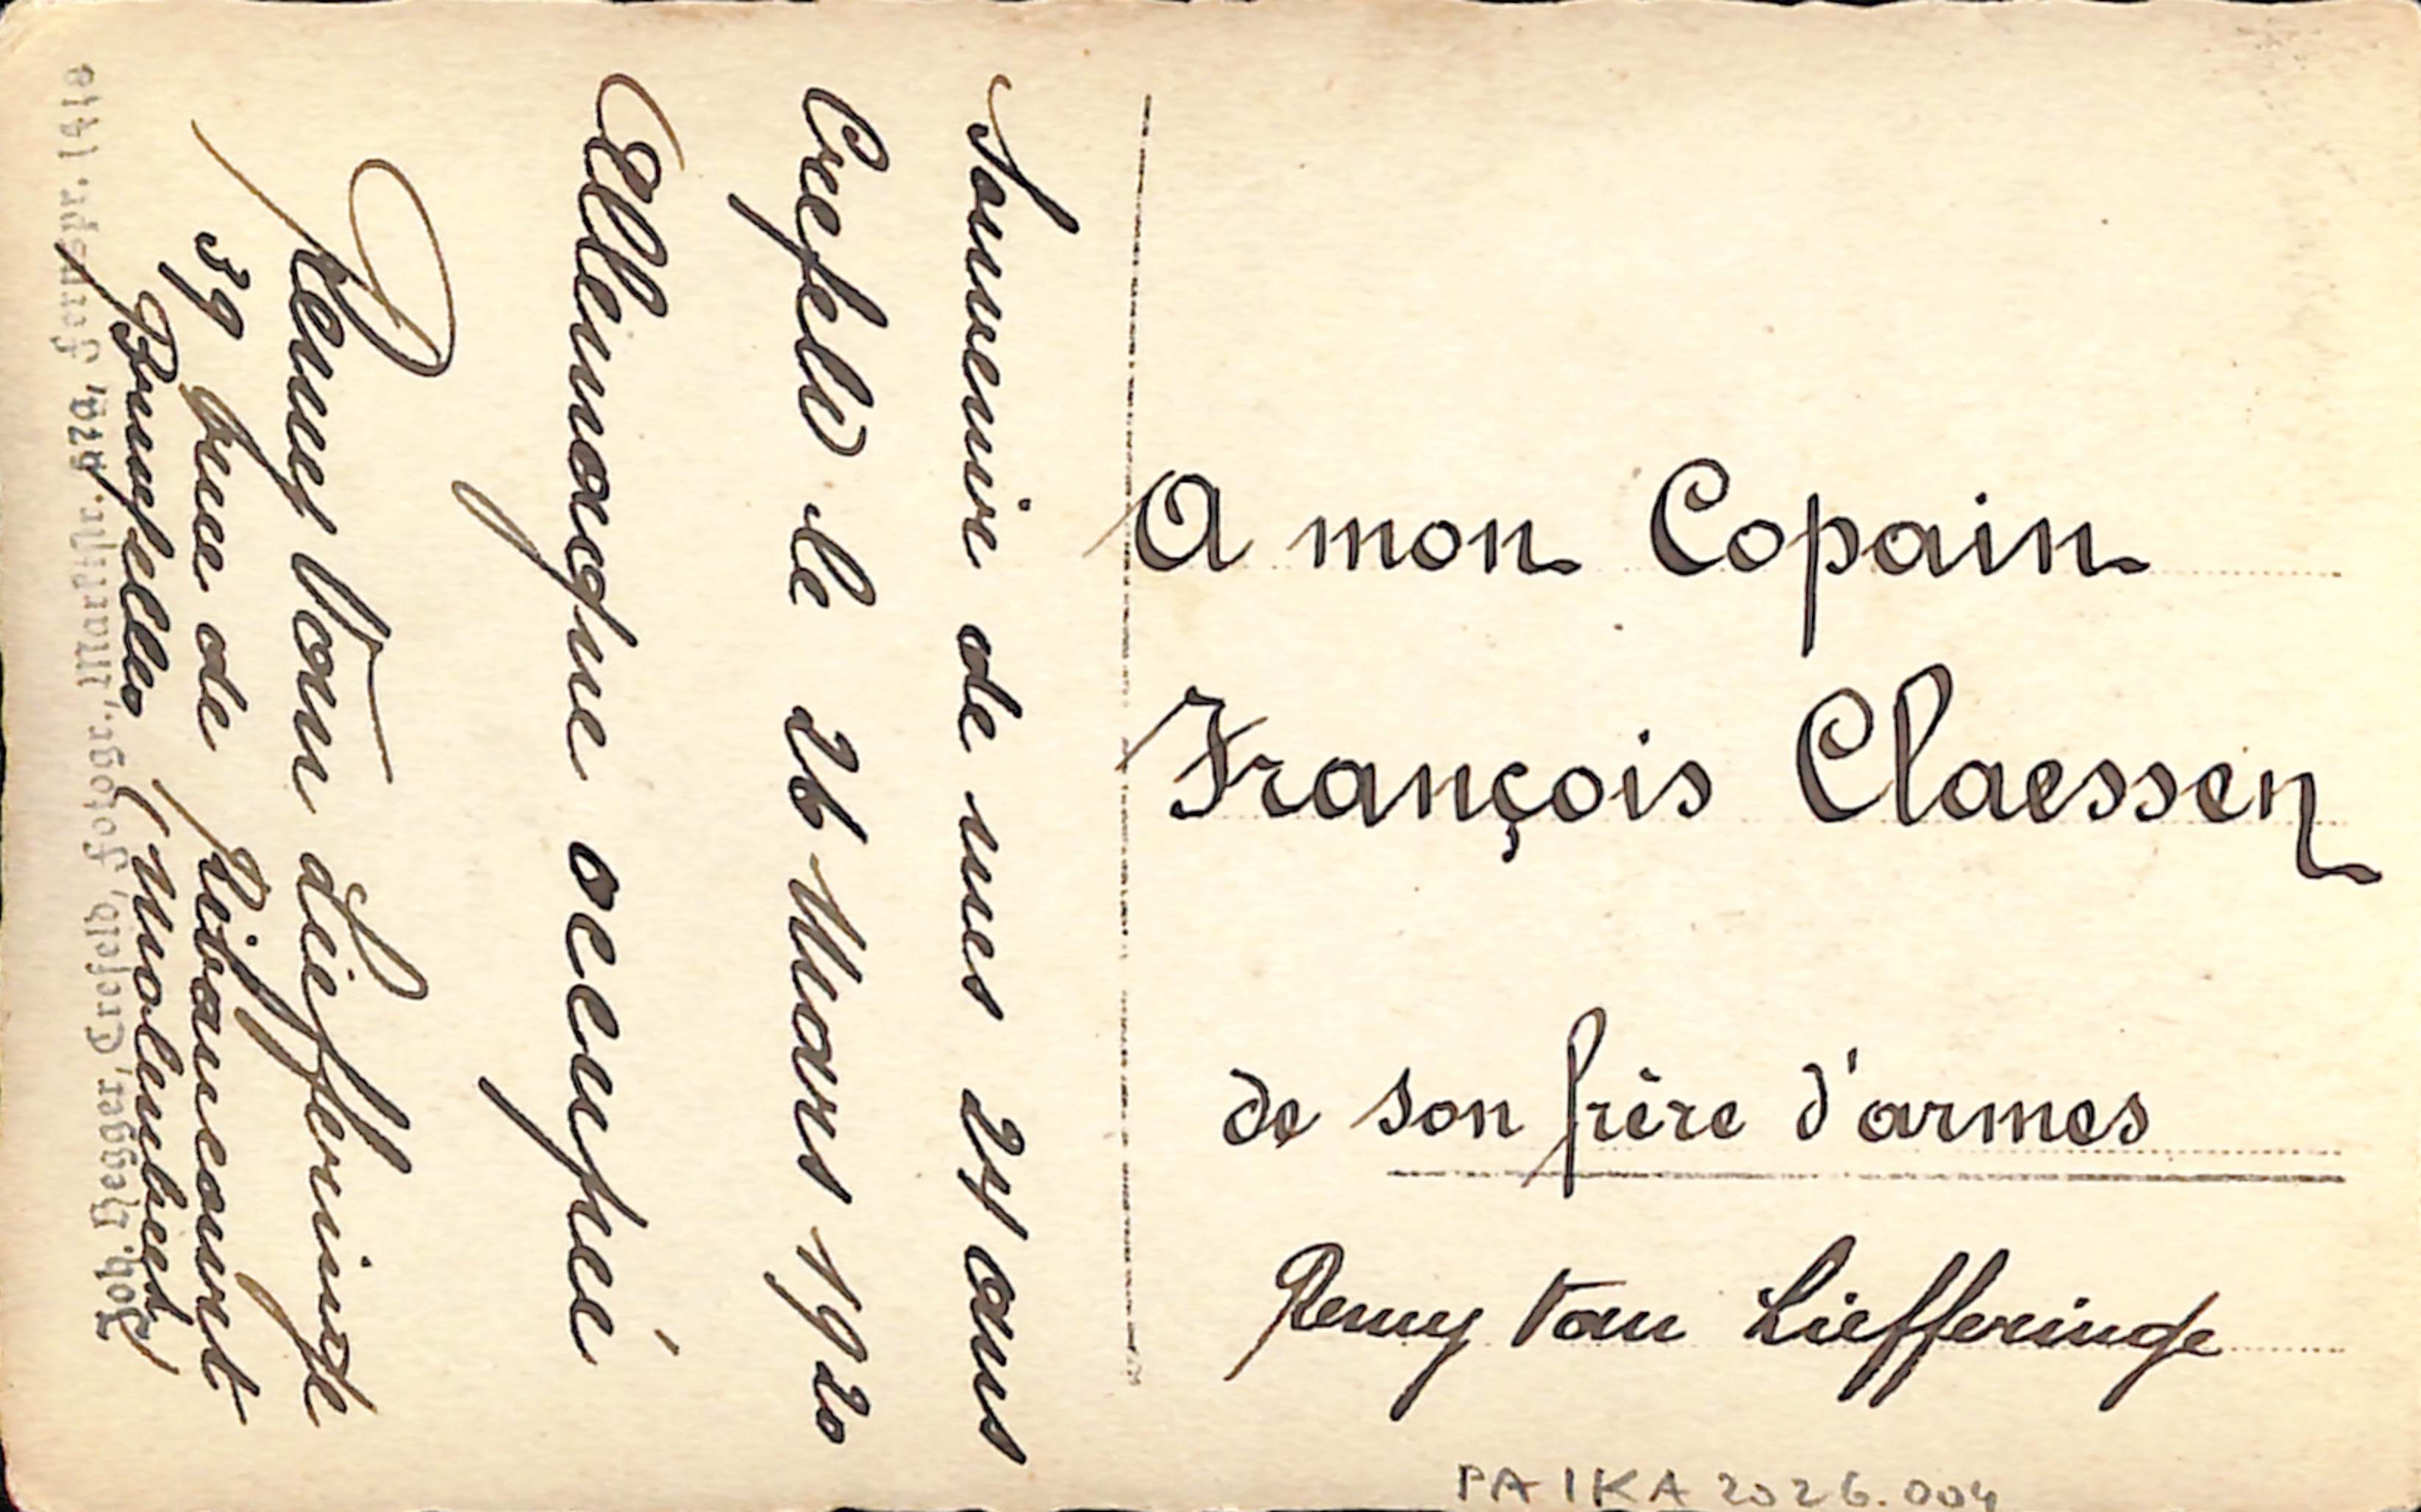 Souvenir de mes 24 ans
Crefeld le 26 Mars 1920
Allemagne occupée
Remy Van Liefferinge
39 rue de Ribaucourt
Bruxelles (Molenbeek)
Joh. Hegger, Crefeld, Fotogr., Marktstr. 67a, Fernspr. 1418
A mon Copain
François Claessen
de son frère d'armes
Remy Van Liefferinge
PA IKA 2026.004